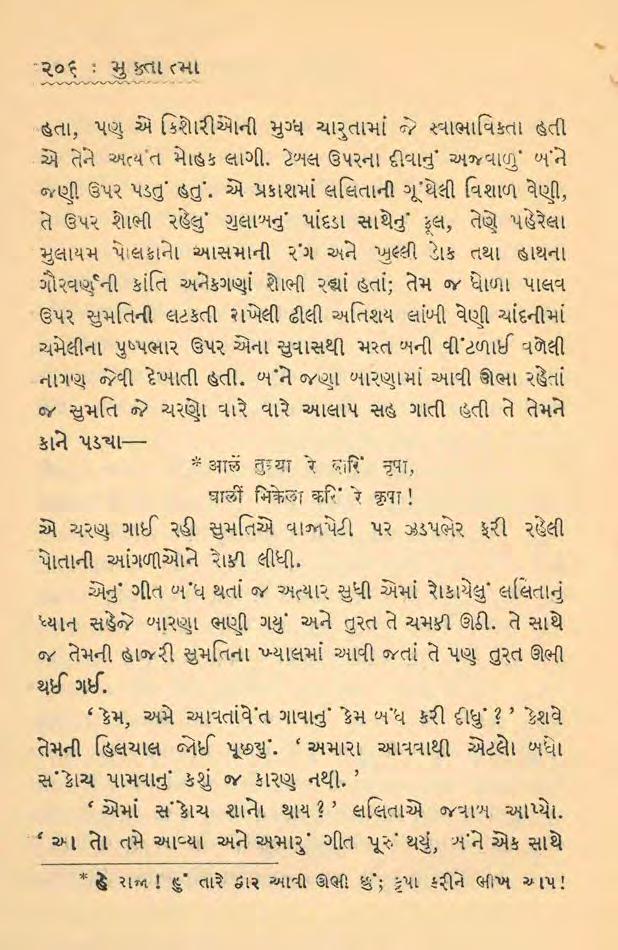 ૨૦૬ : મુક્તાત્મા
હતા, પણ એ કિશોરીઓની મુગ્ધ ચારુતામાં જે સ્વાભાવિકતા હતી
એ તેને અત્યંત મોહક લાગી. ટેબલ ઉપરના દીવાનું અજવાળું બંને
જણી ઉપર પડતું હતું. એ પ્રકાશમાં લલિતાની ગૂંથેલી વિશાળ વેણી,
તે ઉપર શોભી રહેલું ગુલાબનું પાંદડા સાથેનું ફૂલ, તેણે પહેરેલા
મુલાયમ પોલકાનો આસમાની રંગ અને ખુલ્લી ડોક તથા હાથના
ગૌરવર્ણની કાંતિ અનેકગણાં શોભી રહ્યાં હતાં; તેમ જ ધોળા પાલવ
ઉપર સુમતિની લટકતી રાખેલી ઢીલી અતિશય લાંબી વેણી ચાંદનીમાં
ચમેલીના પુષ્પભાર ઉપર એના સુવાસથી મસ્ત બની વીંટળાઈ વળેલી
નાગણ જેવી દેખાતી હતી. બંને જણા બારણામાં આવી ઊભા રહેતાં
જ સુમતિ જે ચરણો વારે વારે આલાપ સહ ગાતી હતી તે તેમને
કાને પડ્યા—
* आलें तुझ्या रे दारिं नृपा,
घालीं भिकेला करिं रे कृपा !
એ ચરણ ગાઈ રહી સુમતિએ વાજાપેટી પર ઝડપભેર ફરી રહેલી
પોતાની આંગળીઓને રોકી લીધી.
એનું ગીત બંધ થતાં જ અત્યાર સુધી એમાં રોકાયેલું લલિતાનું
ધ્યાન સહેજે બારણા ભણી ગયું અને તુરત તે ચમકી ઊઠી. તે સાથે
જ તેમની હાજરી સુમતિના ખ્યાલમાં આવી જતાં તે પણ તુરત ઊભી
થઈ ગઈ.
‘ કેમ, અમે આવતાંવેંત ગાવાનું કેમ બંધ કરી દીધું ? ’ કેશવે
તેમની હિલચાલ જોઈ પૂછ્યું. ‘ અમારા આવવાથી એટલો બધો
સંકોચ પામવાનું કશું જ કારણ નથી. ’
‘ એમાં સંકોચ શાનો થાય ? ’ લલિતાએ જવાબ આપ્યો.
‘ આ તો તમે આવ્યા અને અમારું ગીત પૂરું થયું, બંને એક સાથે
* હે રાજા ! હું તારે દ્વાર આવી ઊભી છું; કૃપા કરીને ભીખ આપ !